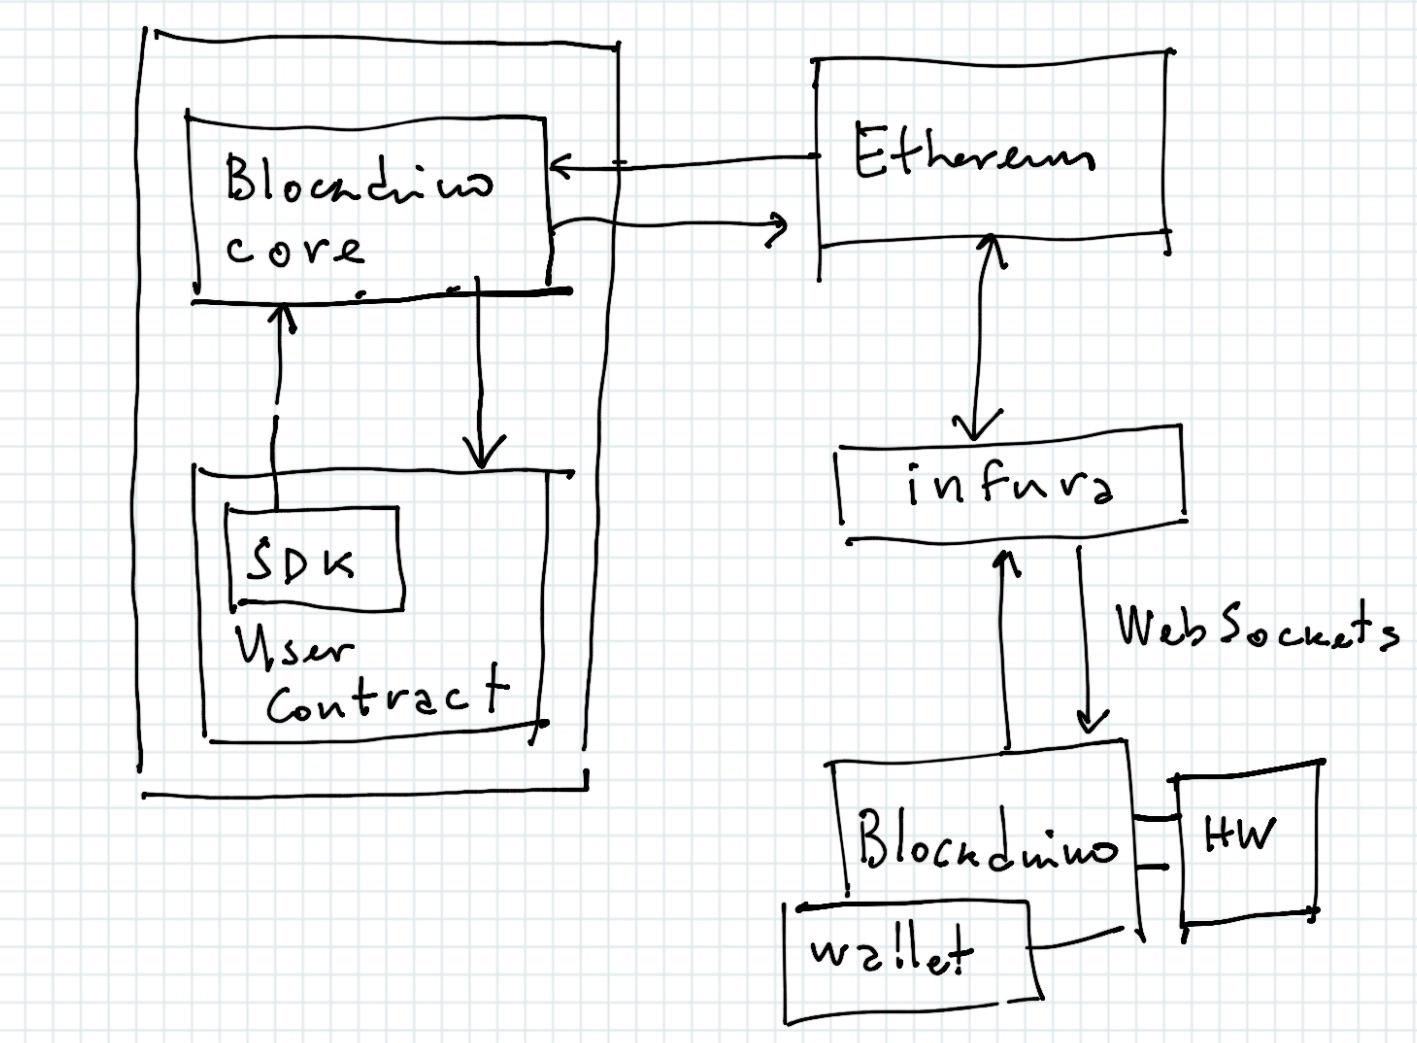 Blockduino
core
SDK
User
Contract
Ethereum
infura
WebSockets
Blockduino
HW
wallet